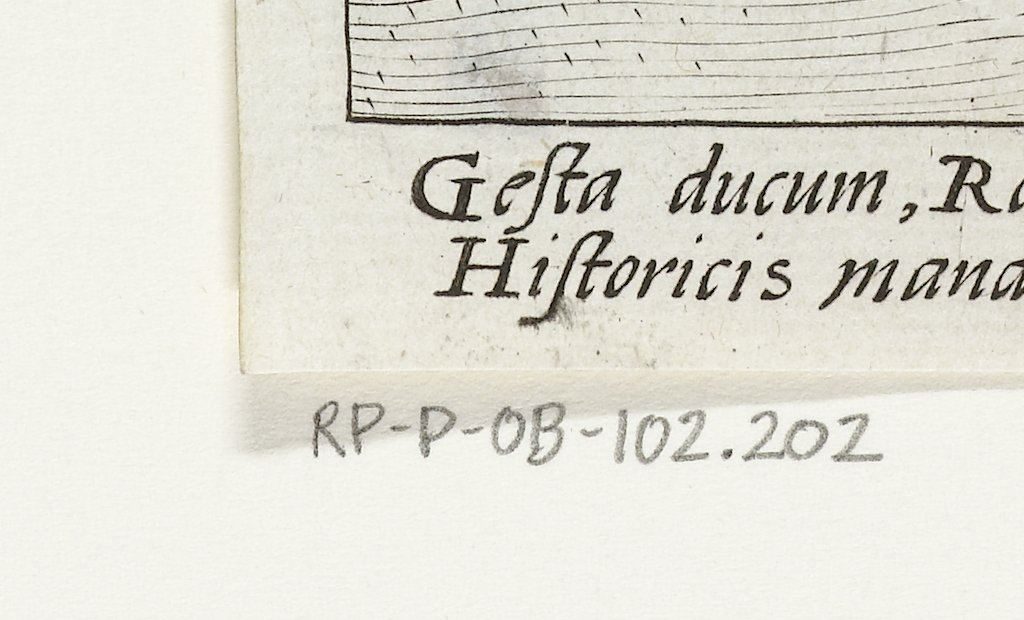 Geſta ducum, R
Hiſtoricis man
RP-P-OB-102.202